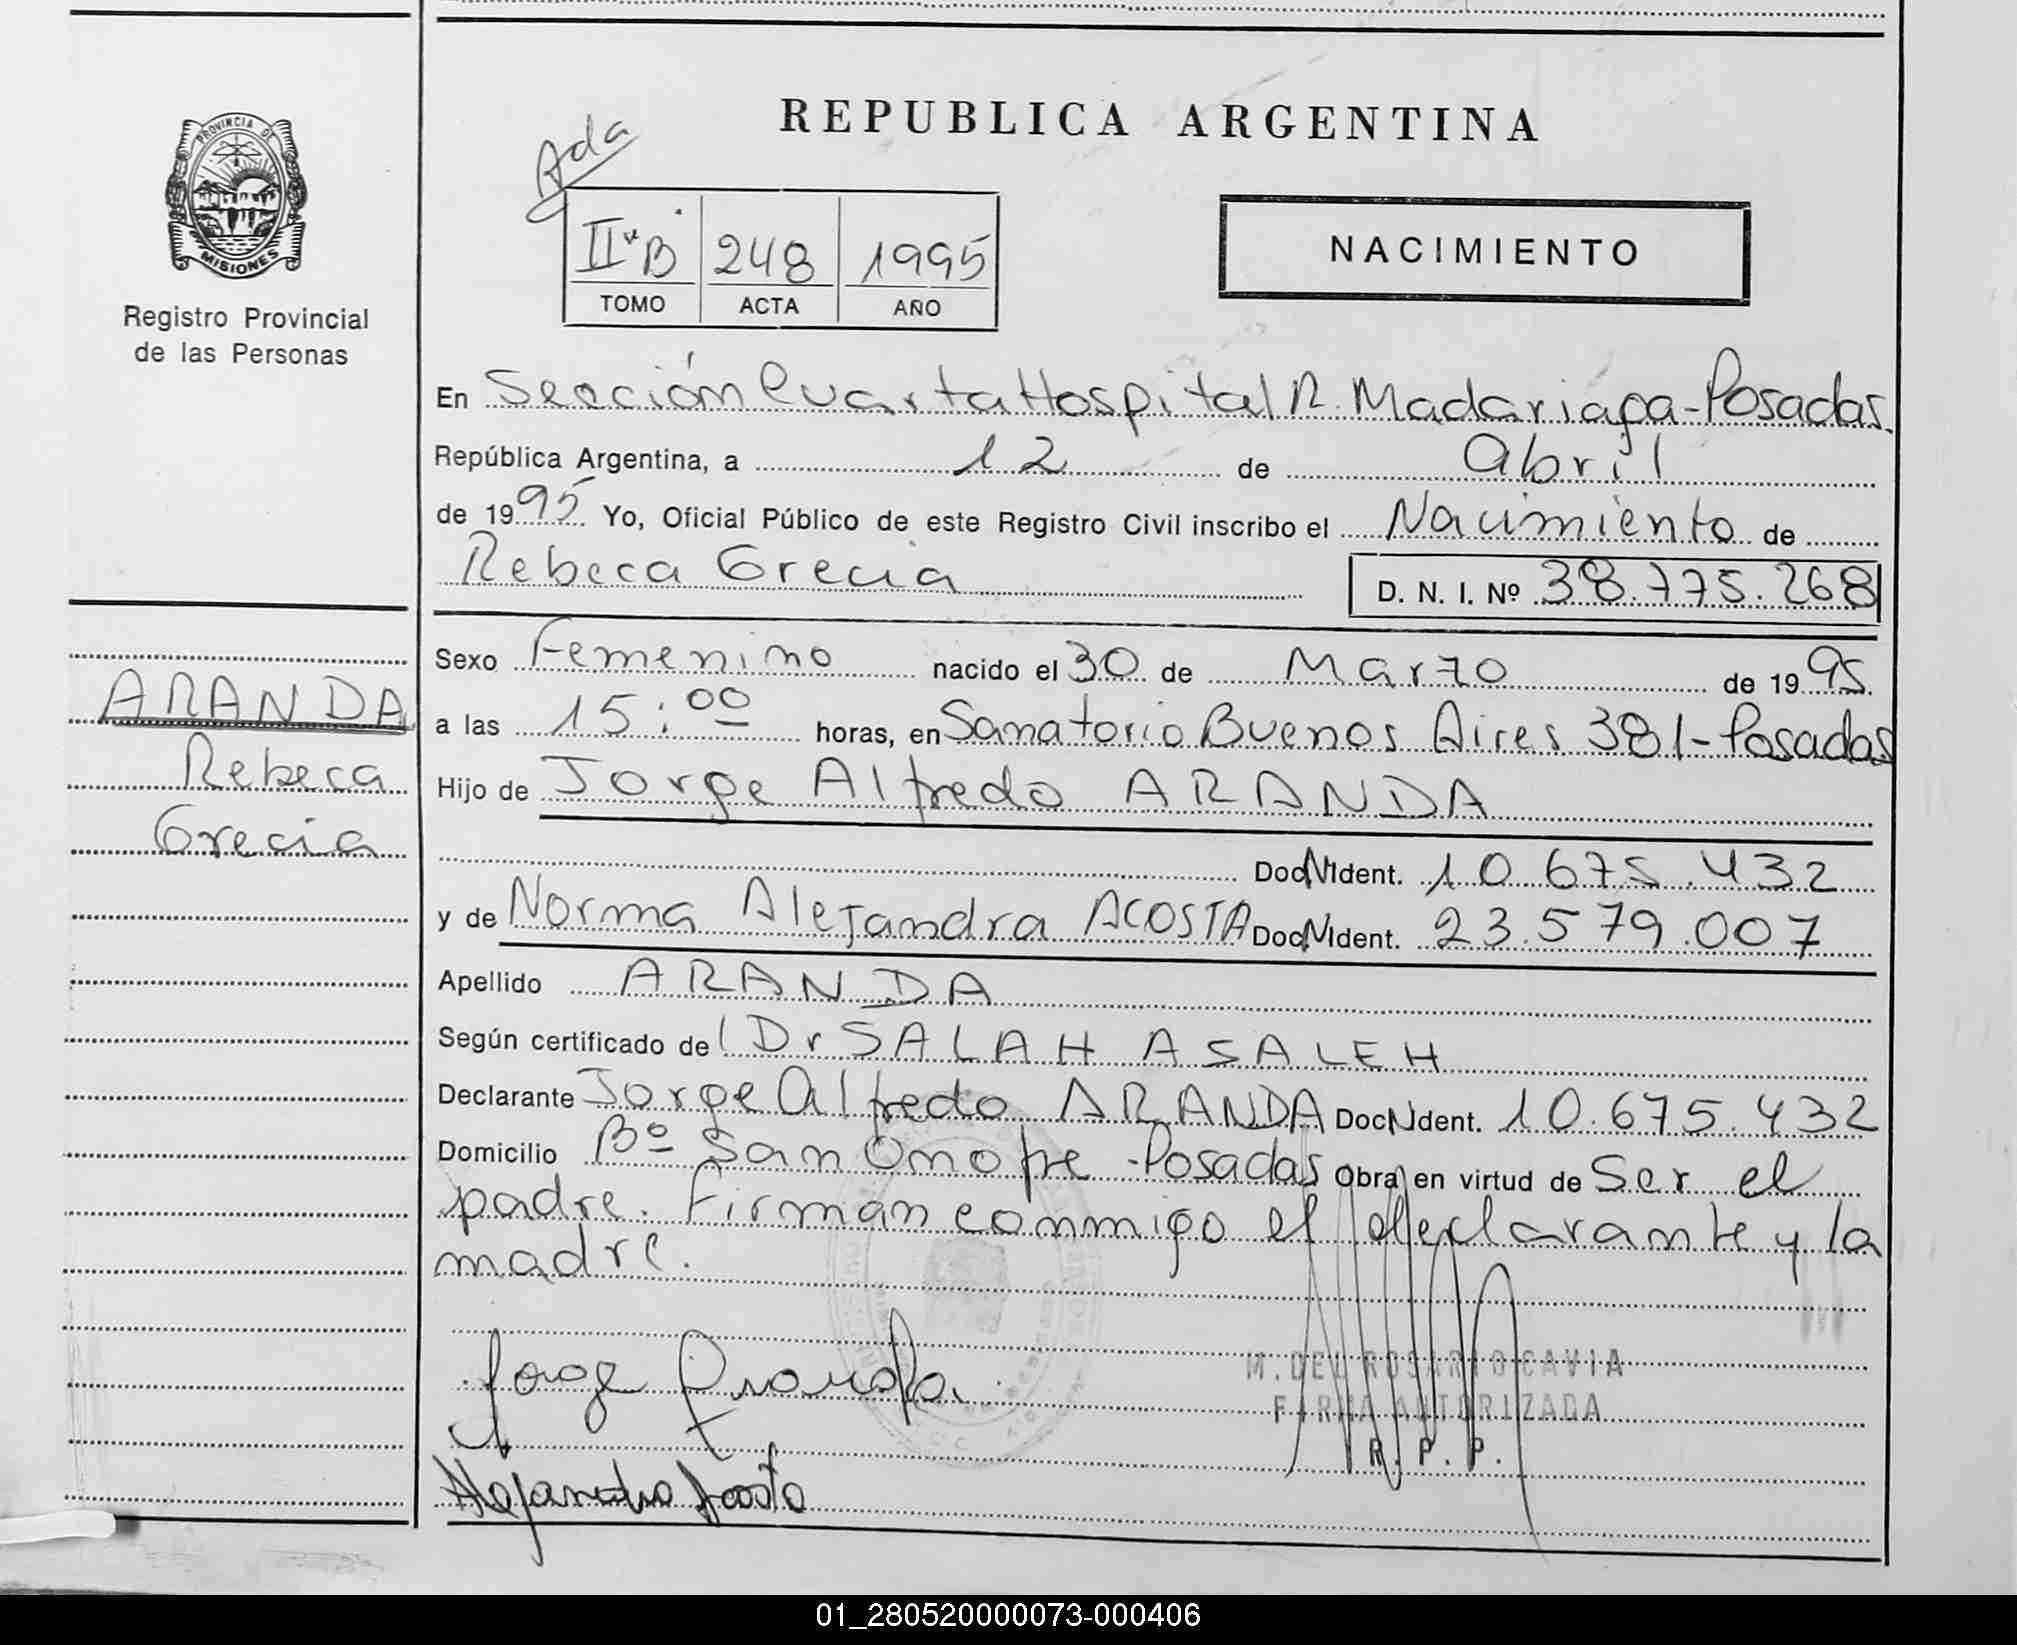 REPUBLICA ARGENTINA
PROVINCIA DE
MISIONES
Registro Provincial
de las Personas
Ada
II B 248 1995
TOMO ACTA AÑO
NACIMIENTO
En Sección Cuarta Hospital R. Madariaga - Posadas.
República Argentina, a 12 de Abril
de 1995 Yo, Oficial Público de este Registro Civil inscribo el Nacimiento de
Rebeca Grecia D. N. I. Nº 38.775.268
Sexo Femenino nacido el 30 de Marzo de 1995.
a las 15:00 horas, en Sanatorio Buenos Aires 381 - Posadas
Hijo de Jorge Alfredo ARANDA
Doc N Ident. 10.675.432
y de Norma Alejandra ACOSTA Doc N Ident. 23.579.007
Apellido ARANDA
Según certificado de Dr SALAH A SALEH
Declarante Jorge Alfredo ARANDA Doc N Ident. 10.675.432
Domicilio Bº San Onofre - Posadas Obra en virtud de Ser el
padre. Firman conmigo el declarante y la
madre.
ARANDA
Rebeca
Grecia
M. DEL ROSARIO CAVIA
FIRMA AUTORIZADA
R. P. P.
Jorge Aranda
Alejandra Acosta
01_280520000073-000406